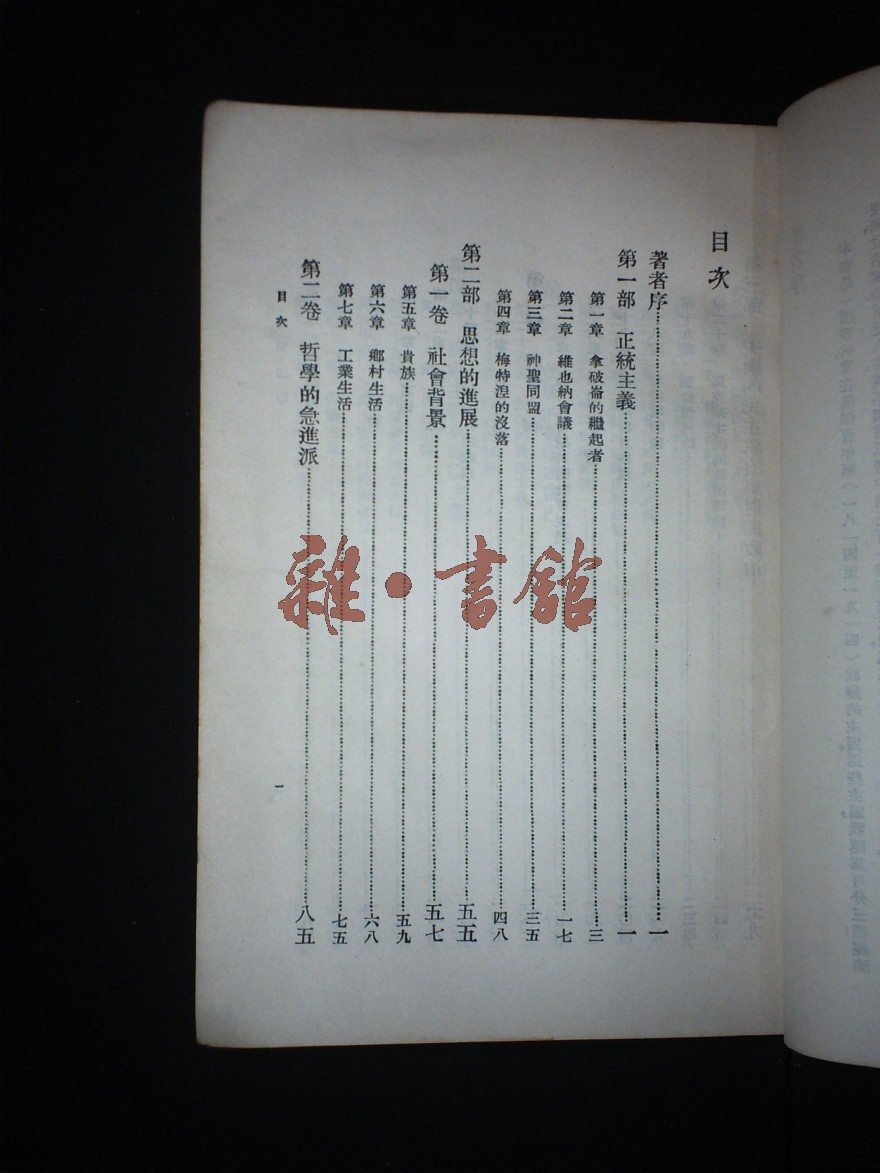 目次
著者序……一
第一部 正統主義……一
第一章 拿破崙的繼起者……三
第二章 維也納會議……一七
第三章 神聖同盟……三五
第四章 梅特涅的沒落……四八
第二部 思想的進展……五五
第一卷 社會背景……五七
第五章 貴族……五九
第六章 鄉村生活……六八
第七章 工業生活……七五
第二卷 哲學的急進派……八五
目次
一
雜·書館